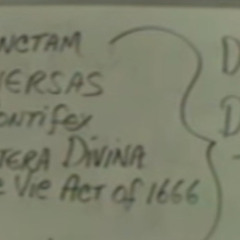 NCTAM
VERSAS
ONTIFEX
TERA DIVINA
E VIE ACT OF 1666
D
D